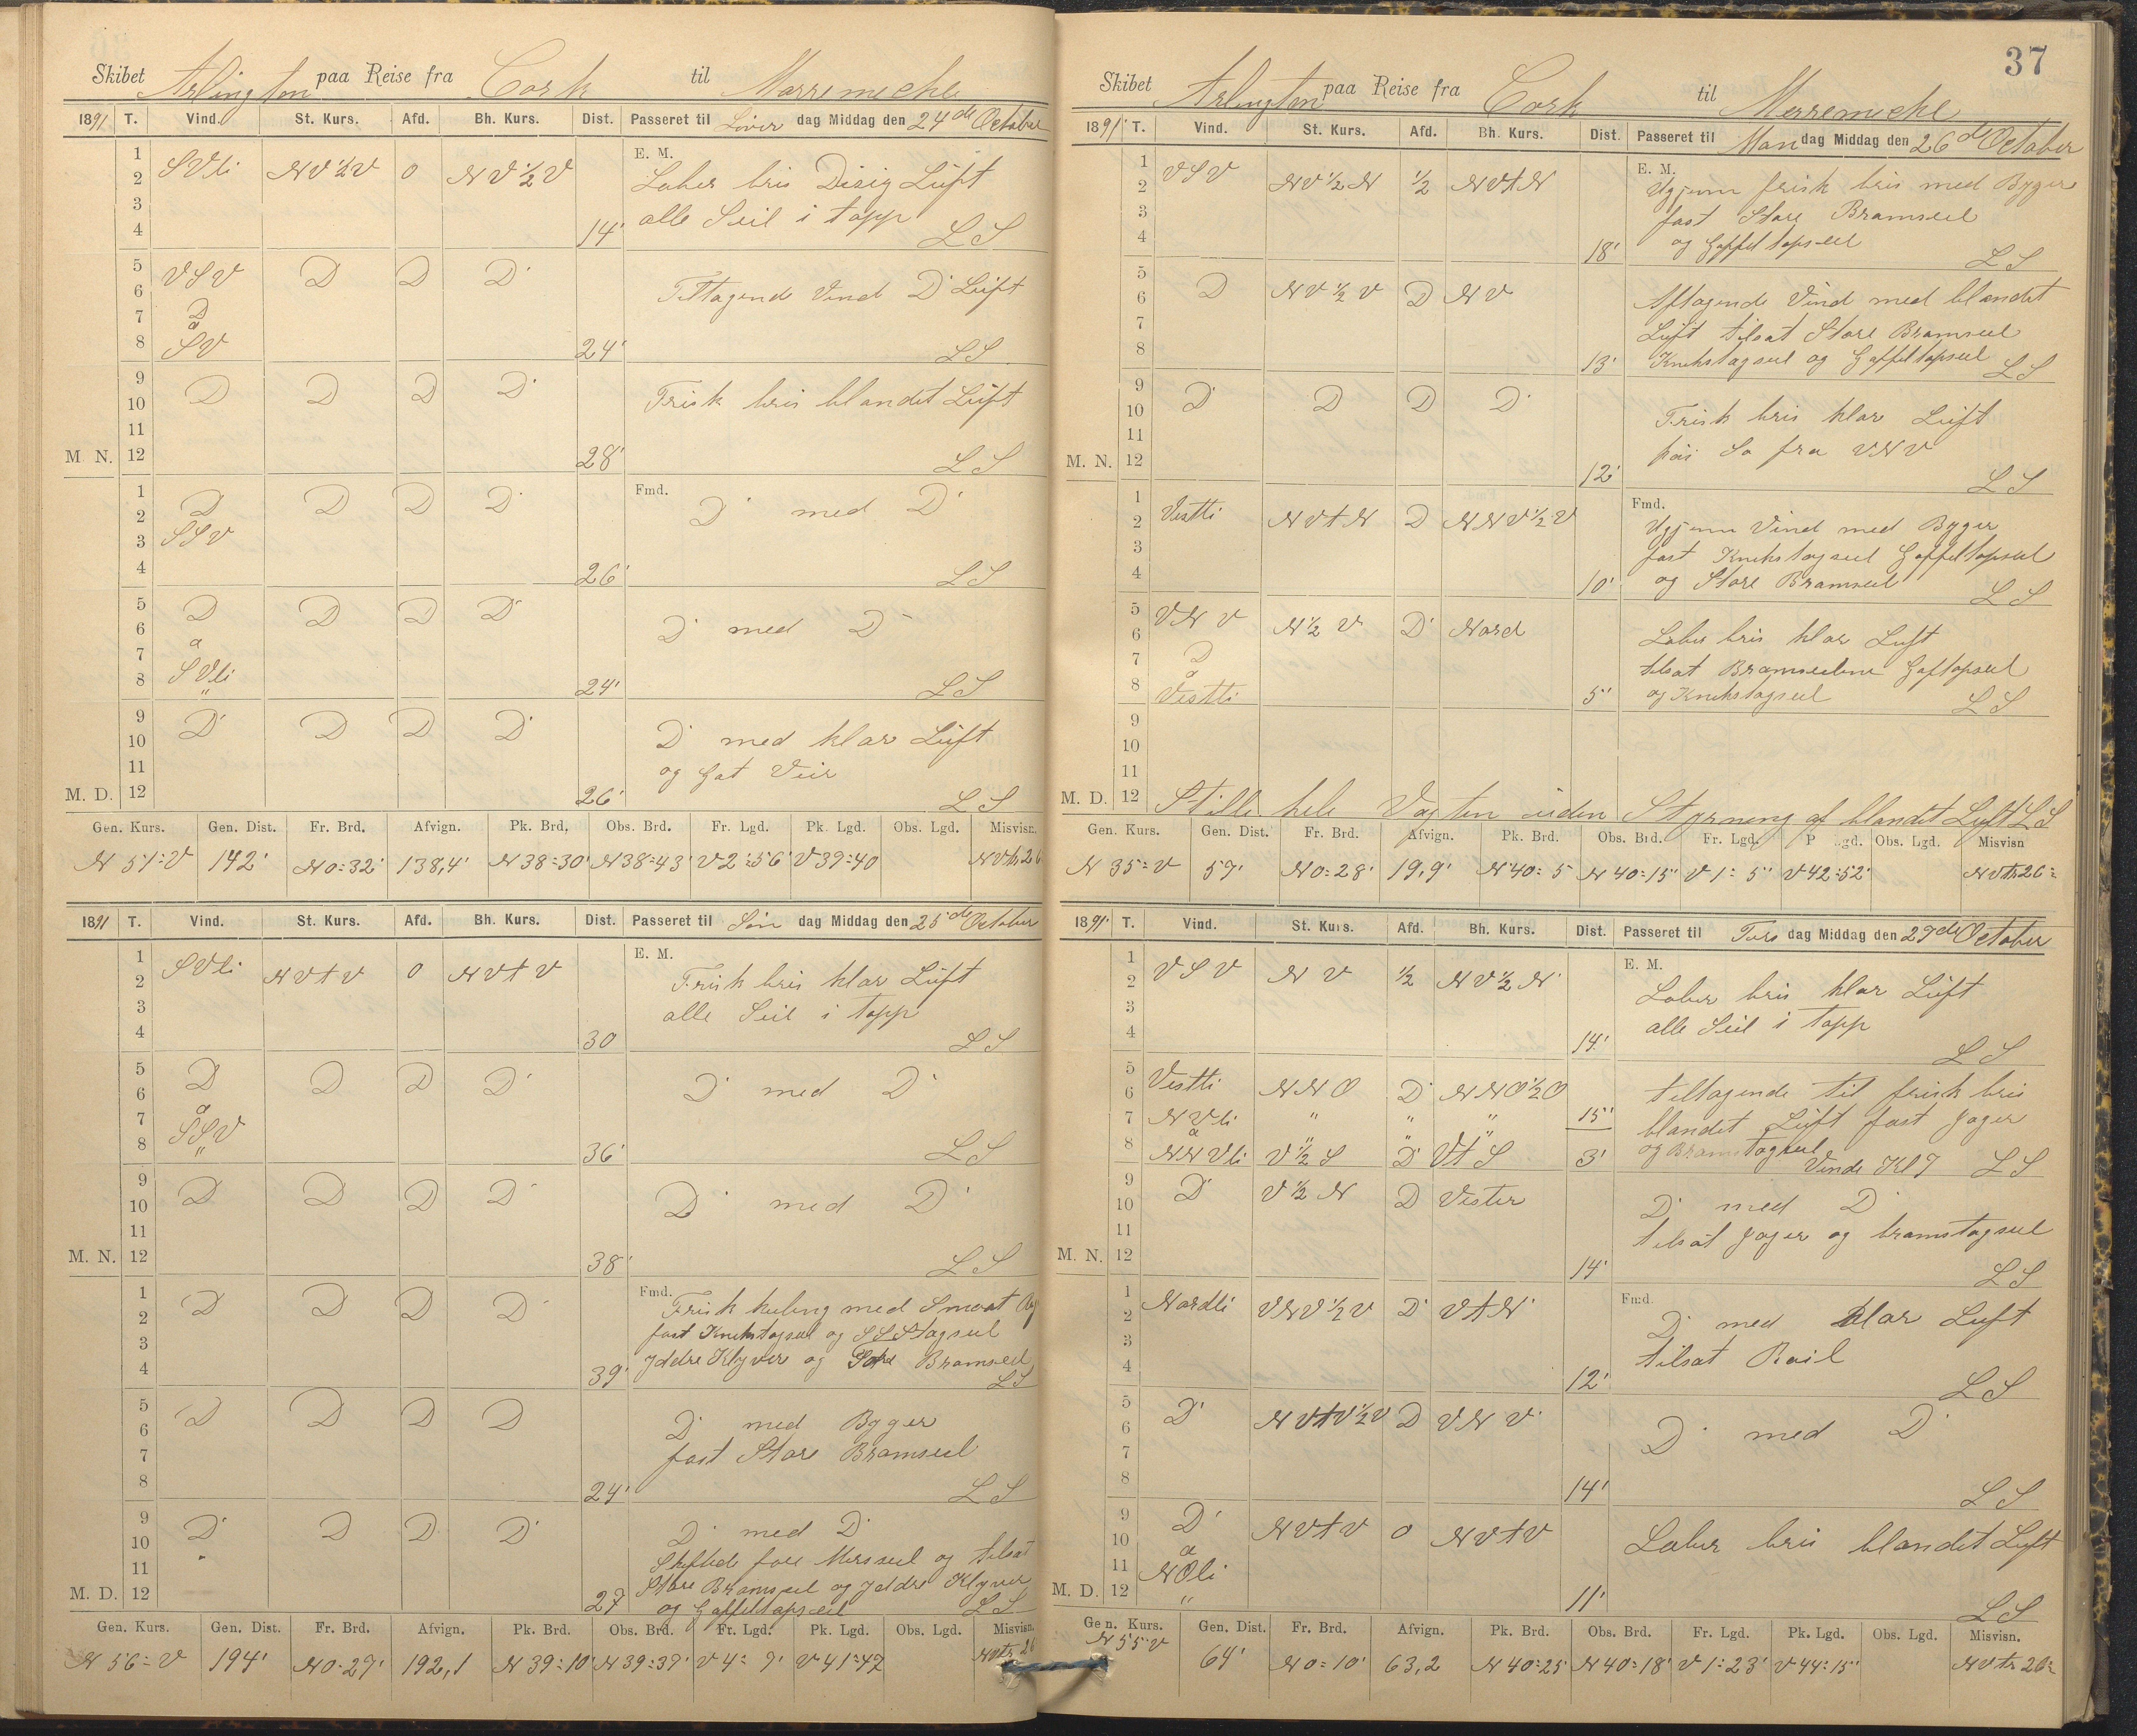 Skibet Arlington paa Reise fra Cork til Merremeche
1891 T. Vind. St. Kurs. Afd. Bh. Kurs. Dist. Passeret til Löver dag Middag den 24de October
E. M.
1 2 SVli NV½V 0 NV½V Laber bris Disig Luft
3 alle Seil i topp
4 14' LS
5 6 VSV D D D Tiltagend Vind D Luft
7 D
a
8 SV 24' LS
9 10 D D D D Frisk bris blandet Luft
11
M. N. 12 28' LS
Fmd.
1 2 D D D D D med D
3 SSV
4 26' LS
5 6 D D D D D med D
7 a
8 SVli 24' LS
9 10 D D D D D med klar Luft
11 og Gat Veir
M. D. 12 26' LS
Gen. Kurs. Gen. Dist. Fr. Brd. Afvign. Pk. Brd. Obs. Brd. Fr. Lgd. Pk. Lgd. Obs. Lgd. Misvisn.
N 51=V 142' N0=32' 138,4' N38=30' N38=43' V2=56' V39=40
1891 T. Vind. St. Kurs. Afd. Bh. Kurs. Dist. Passeret til Sön dag Middag den 25de October
E. M.
1 2 SVli NVtV 0 NVtV Frisk bris klar Luft
3 alle Seil i topp
4 30 LS
5 6 D D D D D med D
7 a
8 SSV 36' LS
9 10 D D D D D med D
11
M. N. 12 38' LS
Fmd.
1 2 D D D D Frisk kuling med Smaat
3 fast Knekstagseil og SSStagseil
4 39' Jddre Klyver og Bramseil
LS
5 6 D D D D D med Byger
7 fast Store Bramseil
8 24' LS
9 10 D D D D D med D
11 Skiftede fore Merseil og tilsat
M. D. 12 27 Store Bramseil og Jddre Klyver
og Gaffeltopseil LS
Gen. Kurs. Gen. Dist. Fr. Brd. Afvign. Pk. Brd. Obs. Brd. Fr. Lgd. Pk. Lgd. Obs. Lgd. Misvisn.
N 56=V 194' N0=27' 192,1 N39=10' N39=37' V4=9' V41=47
37
Skibet Arlington paa Reise fra Cork til Merremeche
1891 T. Vind. St. Kurs. Afd. Bh. Kurs. Dist. Passeret til Man dag Middag den 26de October
E. M.
1 2 VSV NV½N ½ NVtN Ugjenn frisk bris med Byger
3 fast Store Bramseil
4 18' og Gaffeltopseil LS
5 6 D NV½V D NV Aftagende Vind med blandet
7 Luft tilsat Store Bramseil
8 13' Knekstagseil og Gaffeltopseil LS
9 10 D D D D Frisk bris klar Luft
11 fra VNV
M. N. 12 12' LS
Fmd.
1 2 Vestli NVtN D NNV½V Ugjenn Vind med Byger
3 fast Knekstagseil Gaffeltopseil
4 10' og Store Bramseil LS
5 6 VNV N½V D Nord Laber bris klar Luft
7 D tilsat Bramseilene Gaftopseil
a
8 Vestli 5' og Knekstagseil LS
9
10
11
M. D. 12 Stille hele Vagten uden Styrning af blandet Luft LS
Gen. Kurs. Gen. Dist. Fr. Brd. Afvign. Pk. Brd. Obs. Brd. Fr. Lgd. P gd. Obs. Lgd. Misvisn
N 35=V 57' N0=28' 19,9' N40=5 N40=15' V1=5' V42=52' NVtr26=
1891 T. Vind. St. Kurs. Afd. Bh. Kurs. Dist. Passeret til Tirs dag Middag den 27de October
E. M.
1 2 VSV NV ½ NV½N Laber bris klar Luft
3 alle Seil i topp
4 14' LS
5 6 Vestli NNO D NNO½O Tiltagende til frisk bris
7 NVli " " " 15' blandet Luft fast Jager
a
8 NNVli V½S D VtS 3' og Bramstagseil Vende Kl 7 LS
9 10 D V½N D Vester D med D
11 tilsat Jager og bramstagseil
M. N. 12 14' LS
Fmd.
1 2 Nordli VNV½V D VtN D med klar Luft
3 tilsat Roil
4 12' LS
5 6 D NVtV½V D VNV D med D
7
8 14' LS
9 10 D NVtV 0 NVtV Laber bris blandet Luft
a
11 NOli
M. D. 12 " 11' LS
Gen. Kurs. Gen. Dist. Fr. Brd. Afvign. Pk. Brd. Obs. Brd. Fr. Lgd. Pk. Lgd. Obs. Lgd. Misvisn.
N 55=V 64' N0=10' 63,2 N40=25 N40=18' V1=23' V44=15' NVtr26=